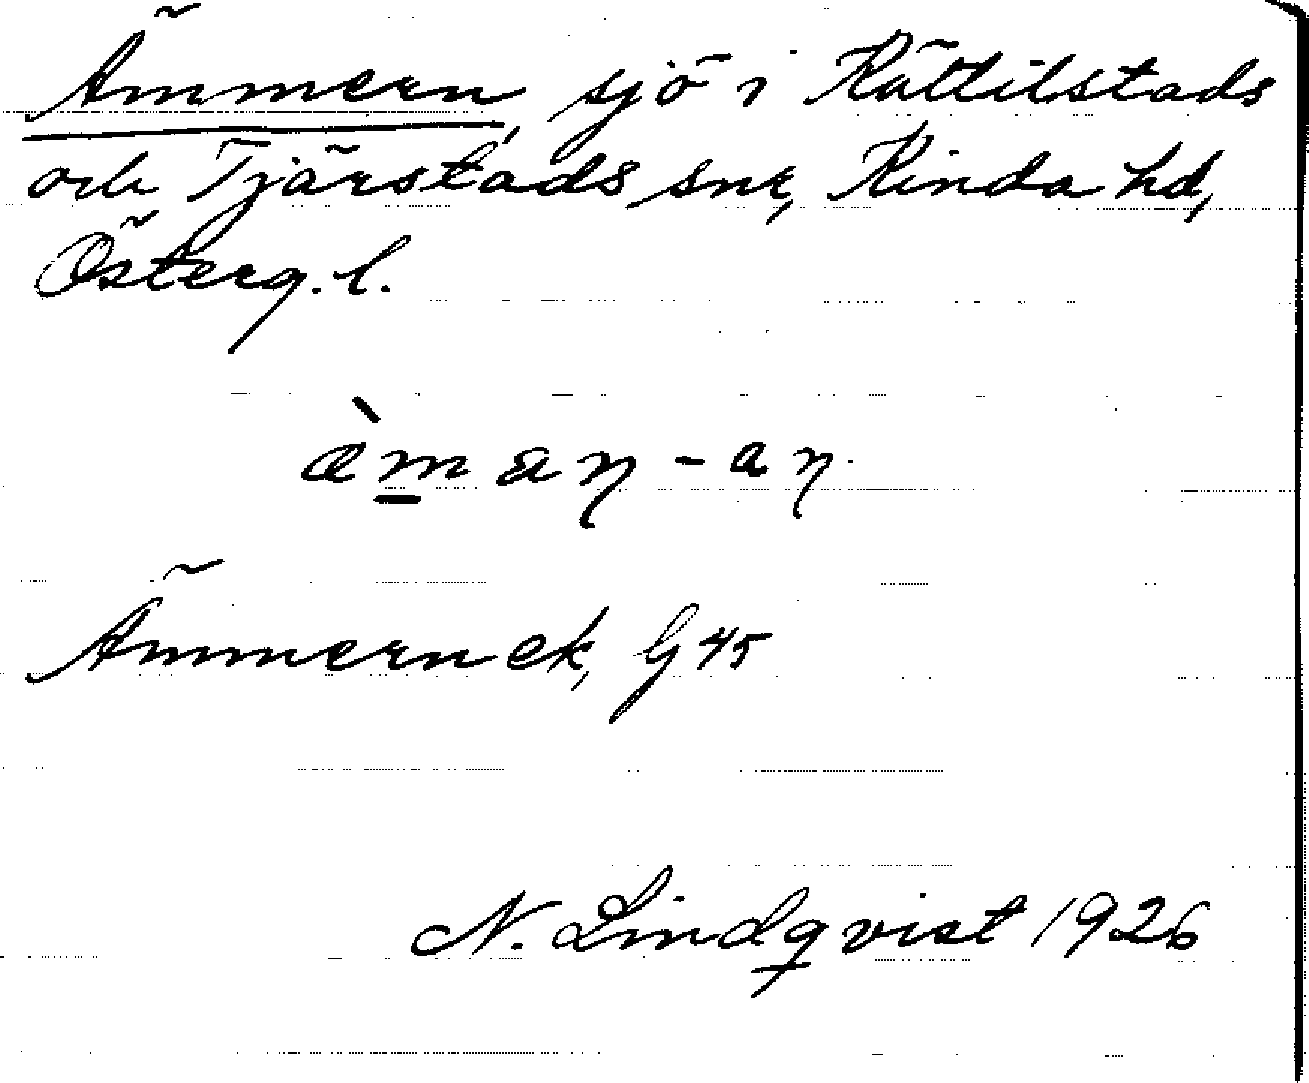 Ämmern sjö i Kättilstads
och Tjärstads snr, Kinda hd,
Österg. l.
Ämmern ek, G 45
N. Lindqvist 1926